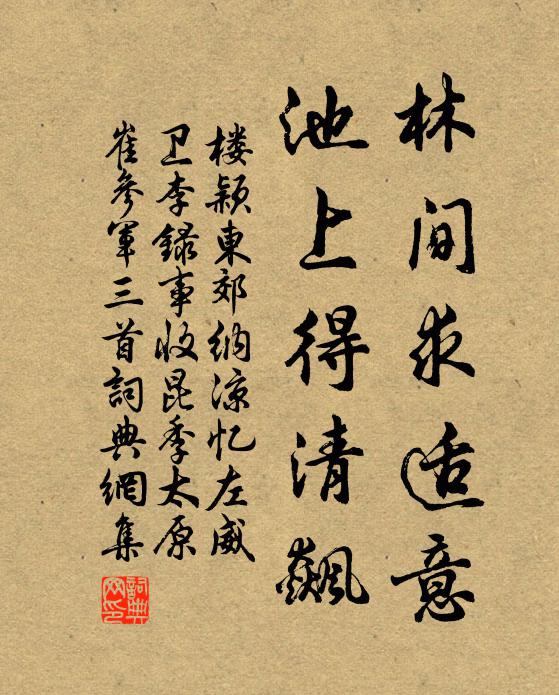 林间求适意
池上得清飙
楼颖東郊納凉忆左威
卫李録事收昆季太原
崔參軍三首詞典網集
詞典网印